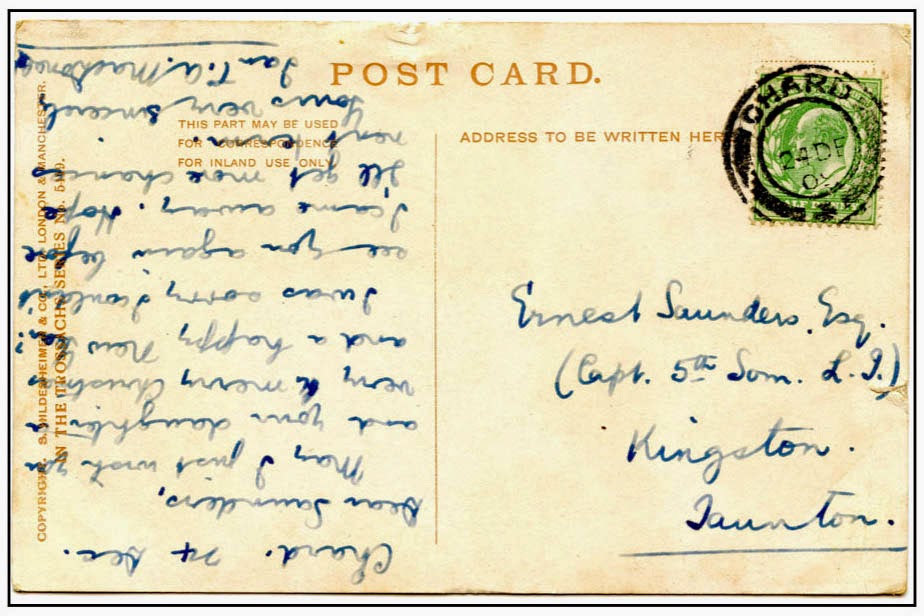 POST CARD.
THIS PART MAY BE USED
FOR CORRESPONDENCE
FOR INLAND USE ONLY.
ADDRESS TO BE WRITTEN HERE
COPYRIGHT. S. HILDESHEIMER & CO., LTD. LONDON & MANCHESTER.
IN THE TROSSACHS SERIES No. 5199.
CHARD
24 DE
Ernest Saunders. Esq.
(Capt. 5th Som. L. I.)
Kingston.
Taunton.
Chard. 24 Dec.
Dear Saunders,
May I just wish you
and your daughter a
very merry Christmas
and a happy New Year?
I was sorry I couldn't
see you again before
I came away. Hope
I'll get more chances
next
Yours very sincerely
Ian